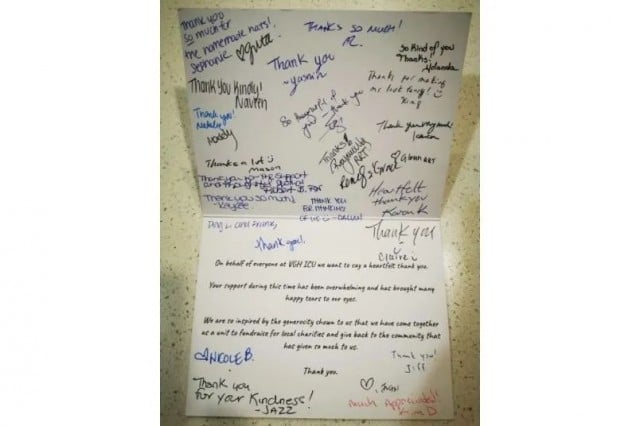 Thank you
so much for
the homemade hats!
Stephanie.
THANKS SO MUCH!
Thank you
~yasmin
So kind of you
Thanks.
Yolanda
Thank You Kindly!
Naveen
Thanks for making
me look fancy!
King
So thoughtful of
you! Thank you
Thank you!
Natalie
Thank you very much!
Thanks a lot
Mason
Thanks
RRT
Glenn RRT
Thank you for the support
Thank you so much!
- Kaylee
THANK YOU
FOR THINKING
OF US
Heartfelt
thank you
Karen K
and Frank,
Thank you!
Thank you
Claire
On behalf of everyone at VGH ICU we want to say a heartfelt thank you.
Your support during this time has been overwhelming and has brought many
happy tears to our eyes.
We are so inspired by the generosity shown to us that we have come together
as a unit to fundraise for local charities and give back to the community that
has given so much to us.
Thank you.
NICOLE B.
Thank you!
Jiff
Thank you
for your Kindness!
-JAZZ
Much Appreciated!